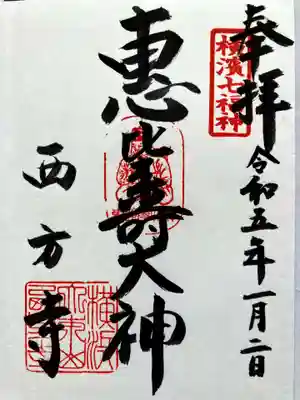 奉拝
横濱七福神
令和五年一月二日
惠比壽大神
西方寺